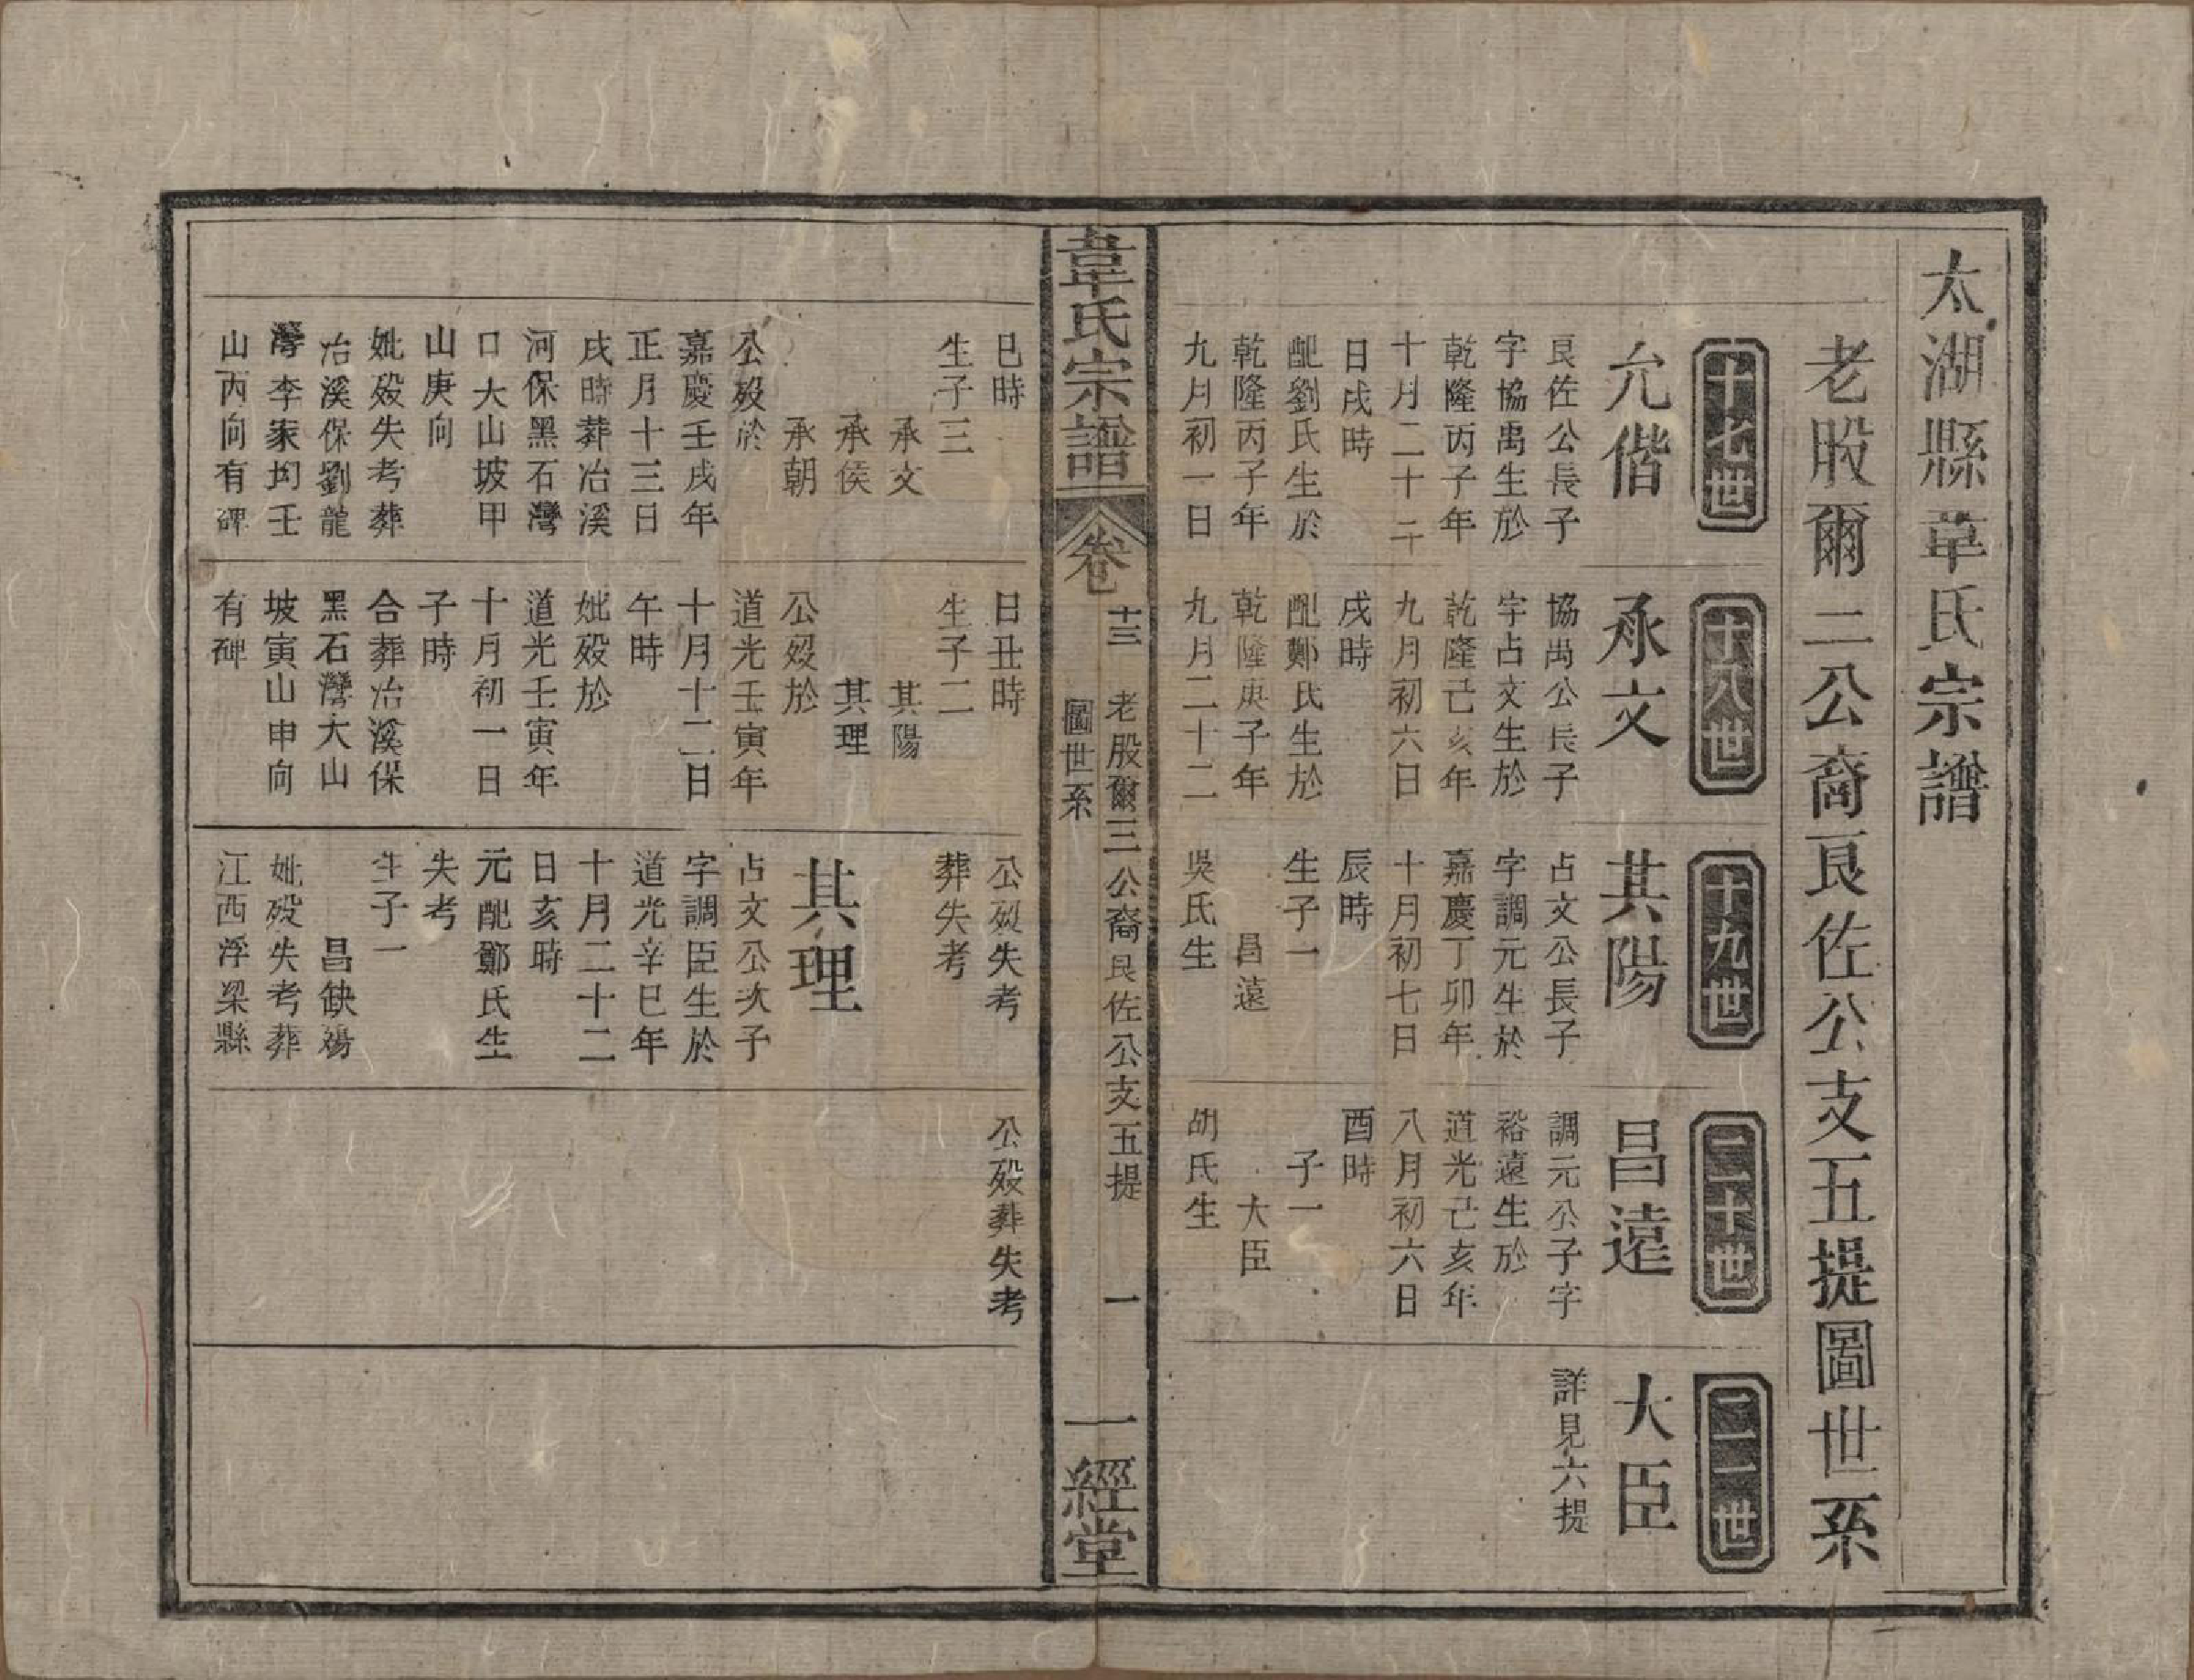 太湖縣韋氏宗譜
老股爾二公裔良佐公支五提圖世系
十七世
允偕
良佐公長子
字協禹生於
乾隆丙子年
十月二十二
日戌時
配劉氏生於
乾隆丙子年
九月初一日
十八世
承文
協禹公長子
字占文生於
乾隆己亥年
九月初六日
戌時
配鄭氏生於
乾隆庚子年
九月二十二
十九世
其陽
占文公長子
字調元生於
嘉慶丁卯年
十月初七日
辰時
生子一
昌遠
吳氏生
二十世
昌遠
調元公子字
裕遠生於
道光己亥年
八月初六日
酉時
子一
大臣
胡氏生
二一世
大臣
詳見六提
韋氏宗譜
卷 十三 老股爾三公裔良佐公支五提
圖世系
一
一經堂
巳時
生子三
承文
承侯
承朝
公歿於
嘉慶壬戌年
正月十三日
戌時葬冶溪
河保黑石灣
口大山坡甲
山庚向
妣歿失考葬
冶溪保劉龍
灣李家均壬
山丙向有碑
日丑時
生子二
其陽
其理
公歿於
道光壬寅年
十月十二日
午時
妣歿於
道光壬寅年
十月初一日
子時
合葬冶溪保
黑石灣大山
坡寅山申向
有碑
公歿失考
葬失考
其理
占文公次子
字調臣生於
道光辛巳年
十月二十二
日亥時
元配鄭氏生
失考
生子一
昌缺殤
妣歿失考葬
江西浮梁縣
公歿葬失考